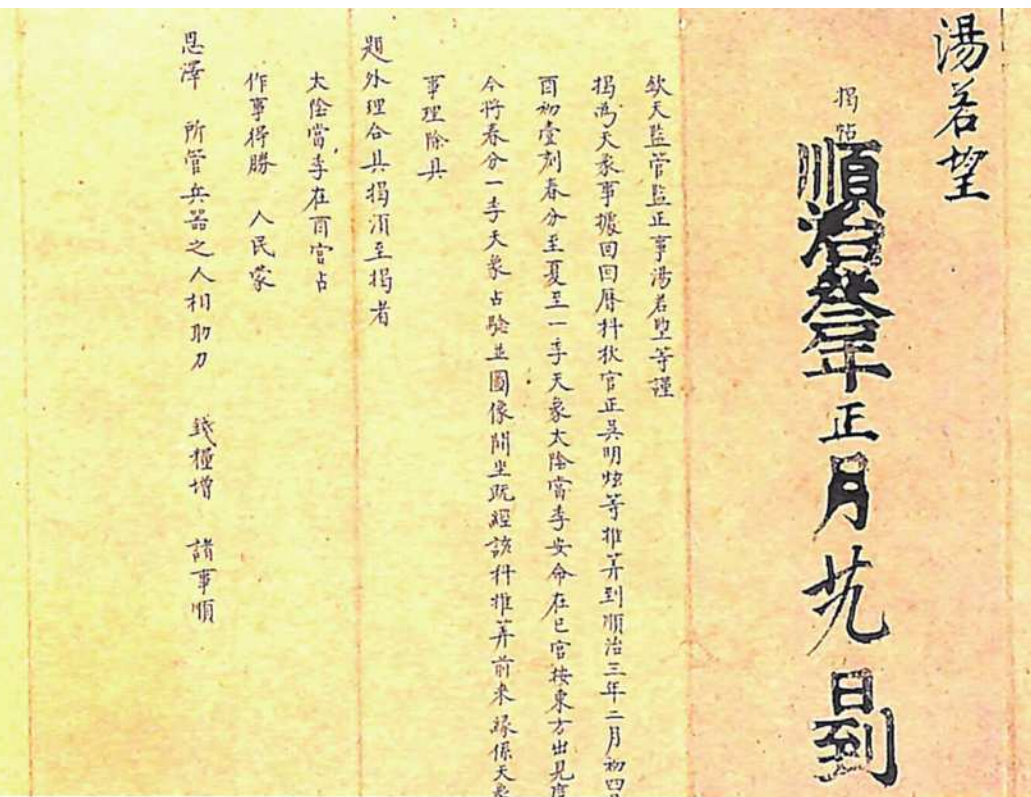 湯若望
揭帖
順治叁年正月廿九日到
欽天監管監正事湯若望等謹
揭為天象事據回回曆科秋官正吳明炫等推筭到順治三年二月初四
酉初壹刻春分至夏至一季天象太陰當季安命在巳宮按東方出見度
今將春分一季天象占驗並圖像開坐既經該科推筭前来緣係天象
事理除具
題外理合具揭須至揭者
太陰當季在酉宮占
作事得勝 人民蒙
恩澤 所管兵器之人相助刀 錢糧增 諸事順